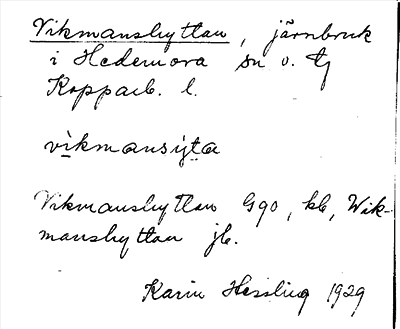 Vikmanshyttan, järnbruk
i Hedemora sn o. tg
Kopparb. l.
vikmansyta
Vikmanshyttan G90, kb, Wik-
manshyttan jb.
Karin Hessling 1929